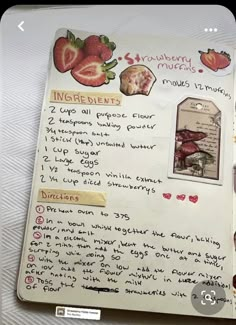 Strawberry
muffins
makes 12 muffins
INGREDIENTS
2 cups all purpose flour
2 teaspoons baking powder
3/4 teaspoon salt
1 stick (1/2 cup) unsalted butter
1 cup sugar
2 large eggs
1 1/2 teaspoon vanilla extract
2 1/4 cup diced strawberries
Directions
① Preheat oven to 375
② in a bowl whisk together the flour, baking
powder, and salt
③ in a electric mixer beat the butter and sugar
for 2 mins then add the eggs one at a time
scraping while doing so
④ with the mixer on low add the flour mixer
in low add the flour mixture in
after adding with the milk
⑤ Toss the strawberries with 2
flour